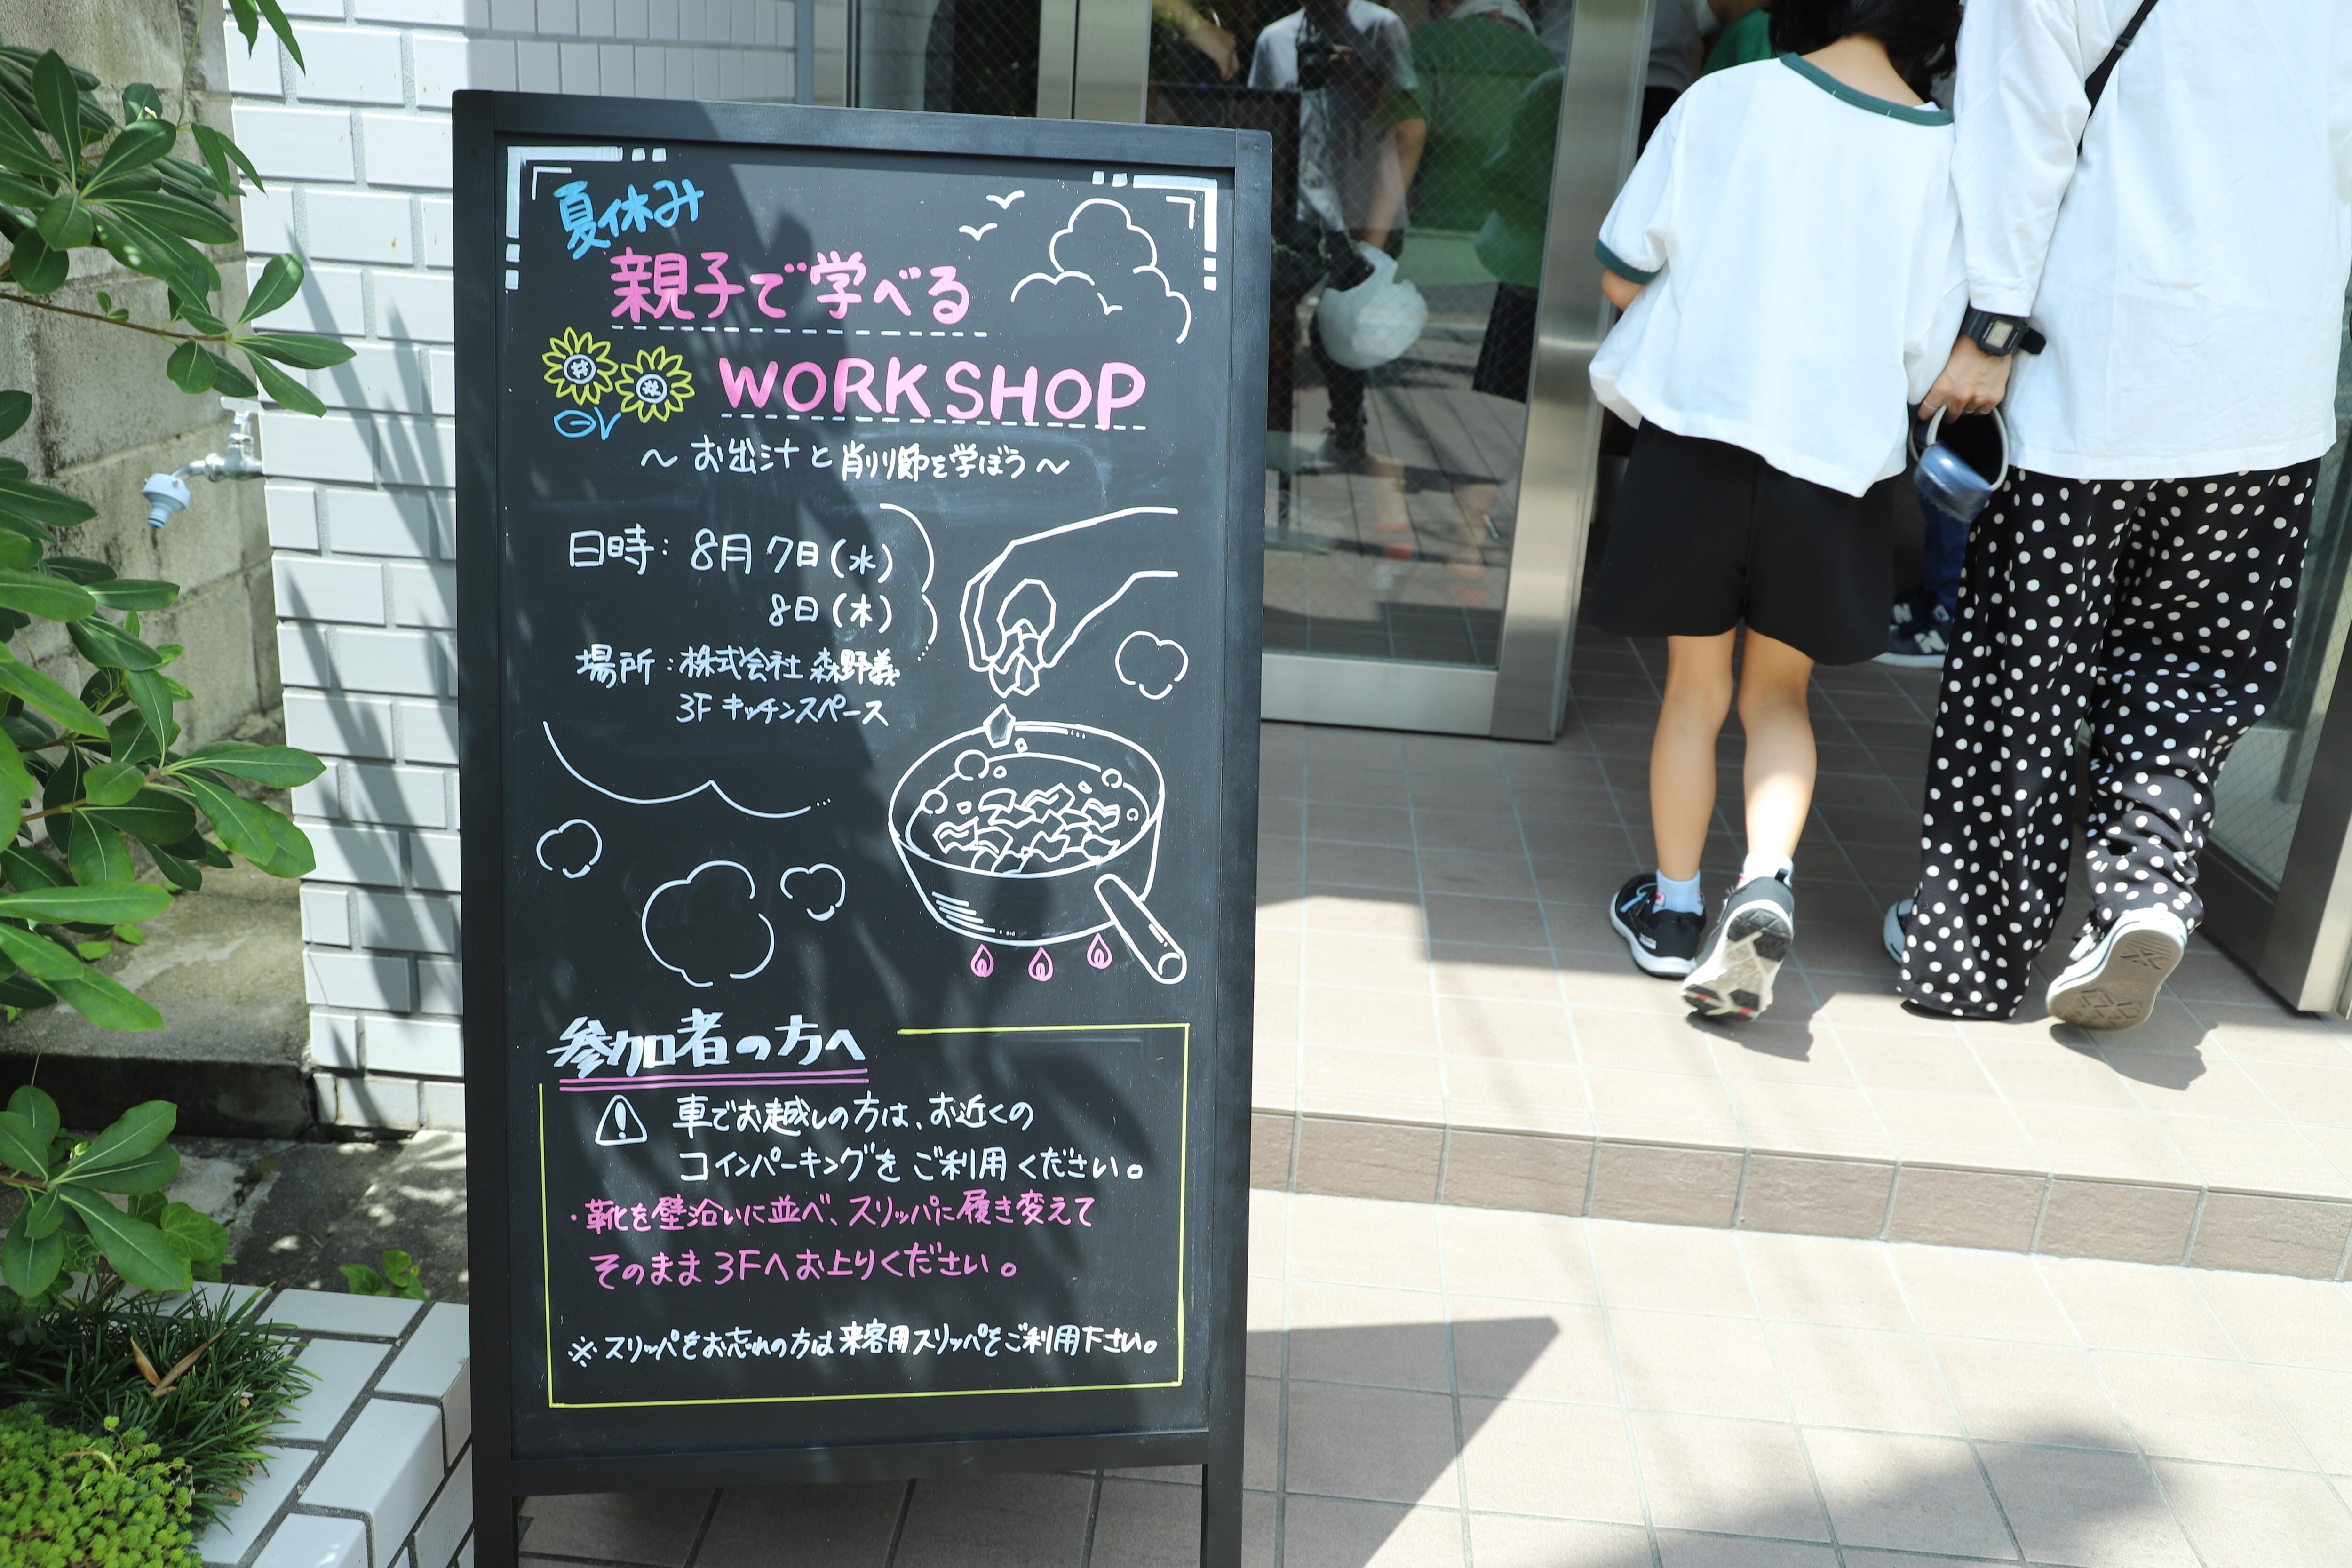 夏休み
親子で学べる
WORKSHOP
～お出汁と削り節を学ぼう～
日時：8月7日（水）
8日（木）
場所：株式会社 森野義
3F キッチンスペース
参加者の方へ
車でお越しの方は、お近くの
コインパーキングをご利用ください。
・靴を壁沿いに並べ、スリッパに履き変えて
そのまま3Fへお上りください。
※スリッパをお忘れの方は来客用スリッパをご利用下さい。